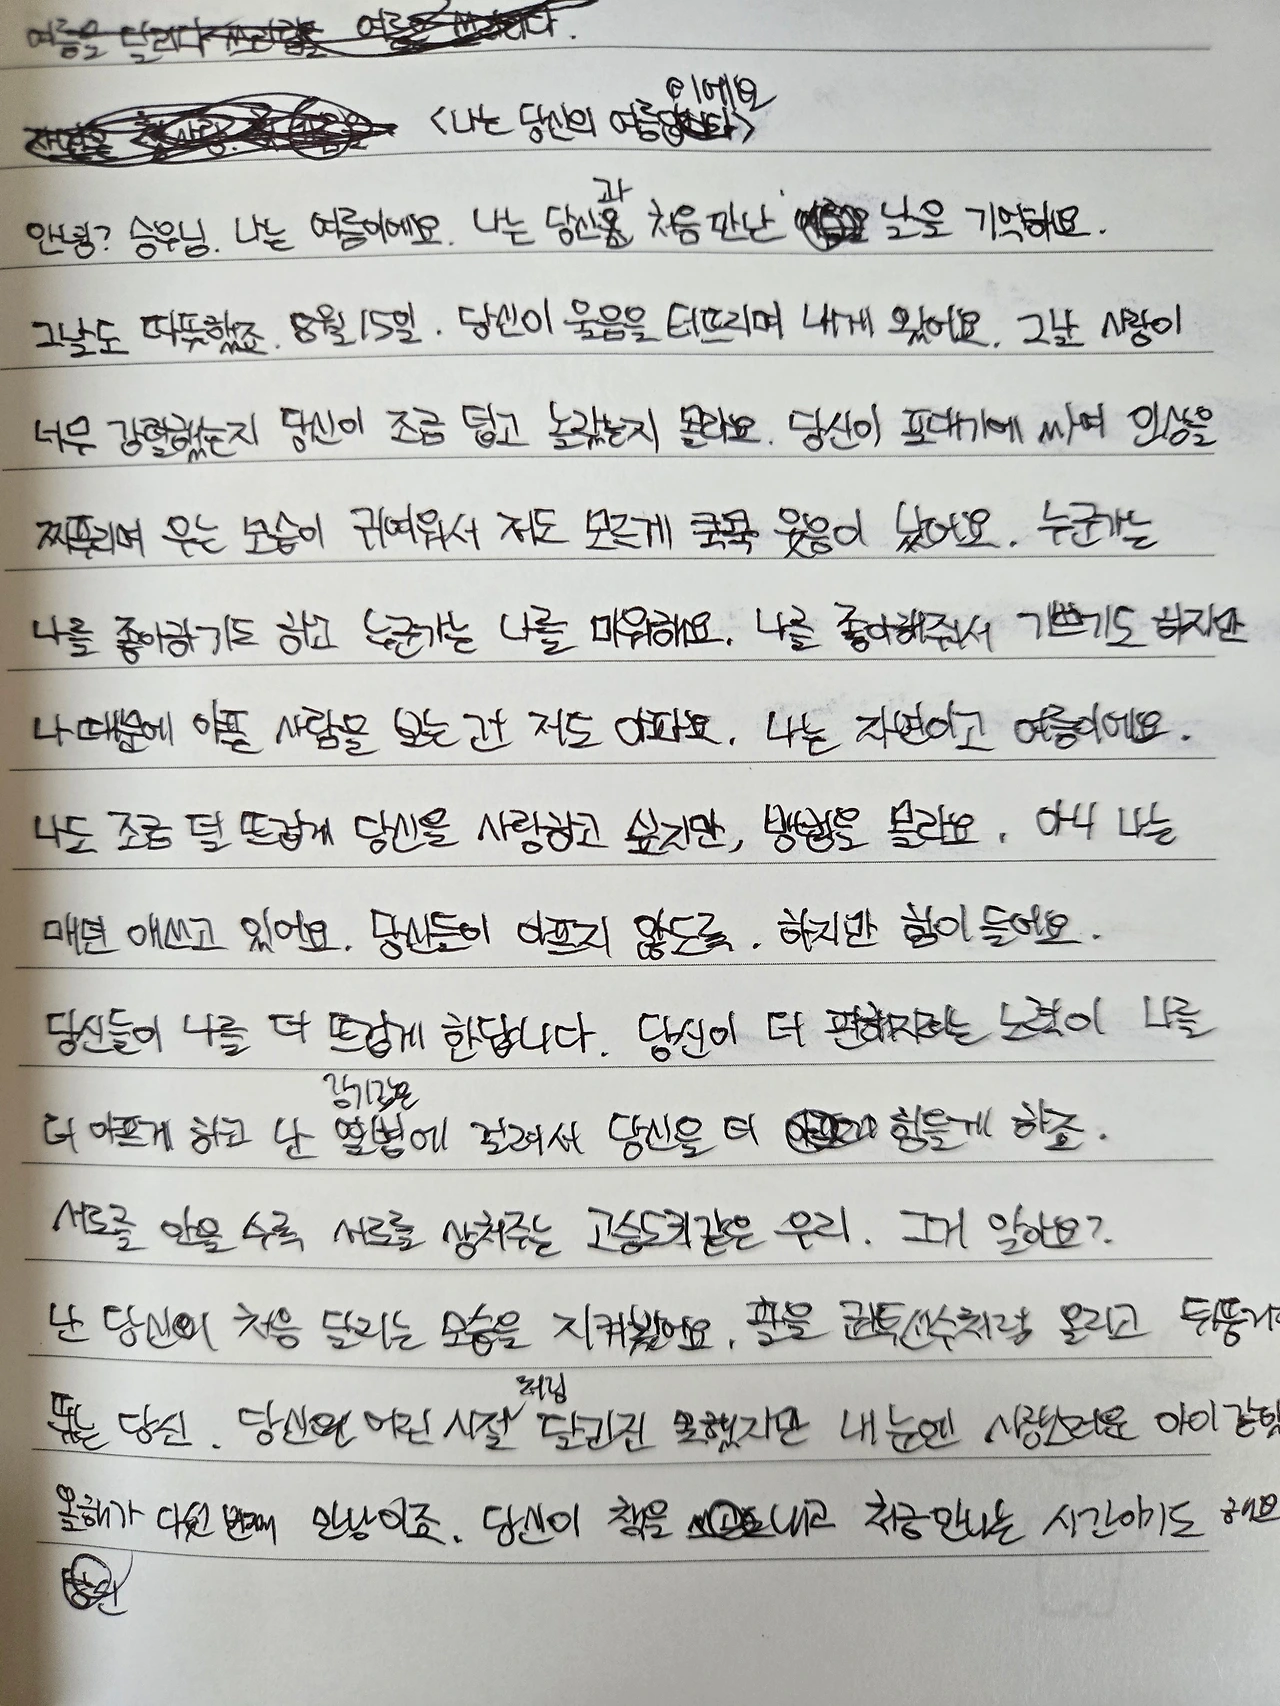 여름을 달리다 여름
<나는 당신의 여름이에요>
안녕? 승우님. 나는 여름이에요. 나는 당신과 처음 만난 날을 기억해요.
그날도 따뜻했죠. 8월 15일. 당신이 울음을 터뜨리며 내게 왔어요. 그날 사랑이
너무 강렬했는지 당신이 조금 덥고 놀랐는지 몰라요. 당신이 포대기에 싸여 인상을
찌푸리며 우는 모습이 귀여워서 저도 모르게 쿡쿡 웃음이 났어요. 누군가는
나를 좋아하기도 하고 누군가는 나를 미워해요. 나를 좋아해줘서 기쁘기도 하지만
나 때문에 아플 사람을 보는 건 저도 아파요. 나는 자연이고 여름이에요.
나도 조금 덜 뜨겁게 당신을 사랑하고 싶지만, 방법을 몰라요. 아니 나는
매년 애쓰고 있어요. 당신들이 아프지 않도록. 하지만 힘이 들어요.
당신들이 나를 더 뜨겁게 한답니다. 당신이 더 편해지려는 노력이 나를
더 아프게 하고 난 감기같은 열병에 걸려서 당신을 더 힘들게 하죠.
서로를 안을 수록 서로를 상처주는 고슴도치같은 우리. 그거 알아요?
난 당신의 처음 달리는 모습을 지켜봤어요. 팔을 권투선수처럼 올리고 뒤뚱거리며
뛰는 당신. 당신의 어린 시절처럼 달리진 못했지만 내 눈엔 사랑스러운 아이같았
올해가 다섯 번째 만남이죠. 당신이 책을 내고 처음 만나는 시간이기도 해요